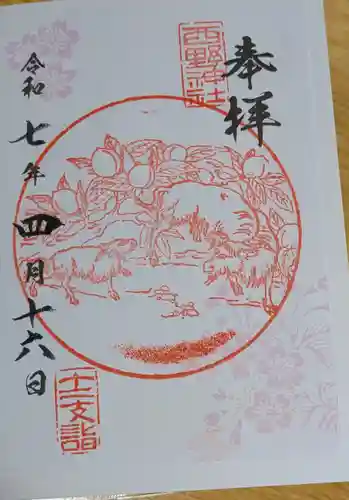 奉拝
西野神社
十二支詣
令和七年四月十六日